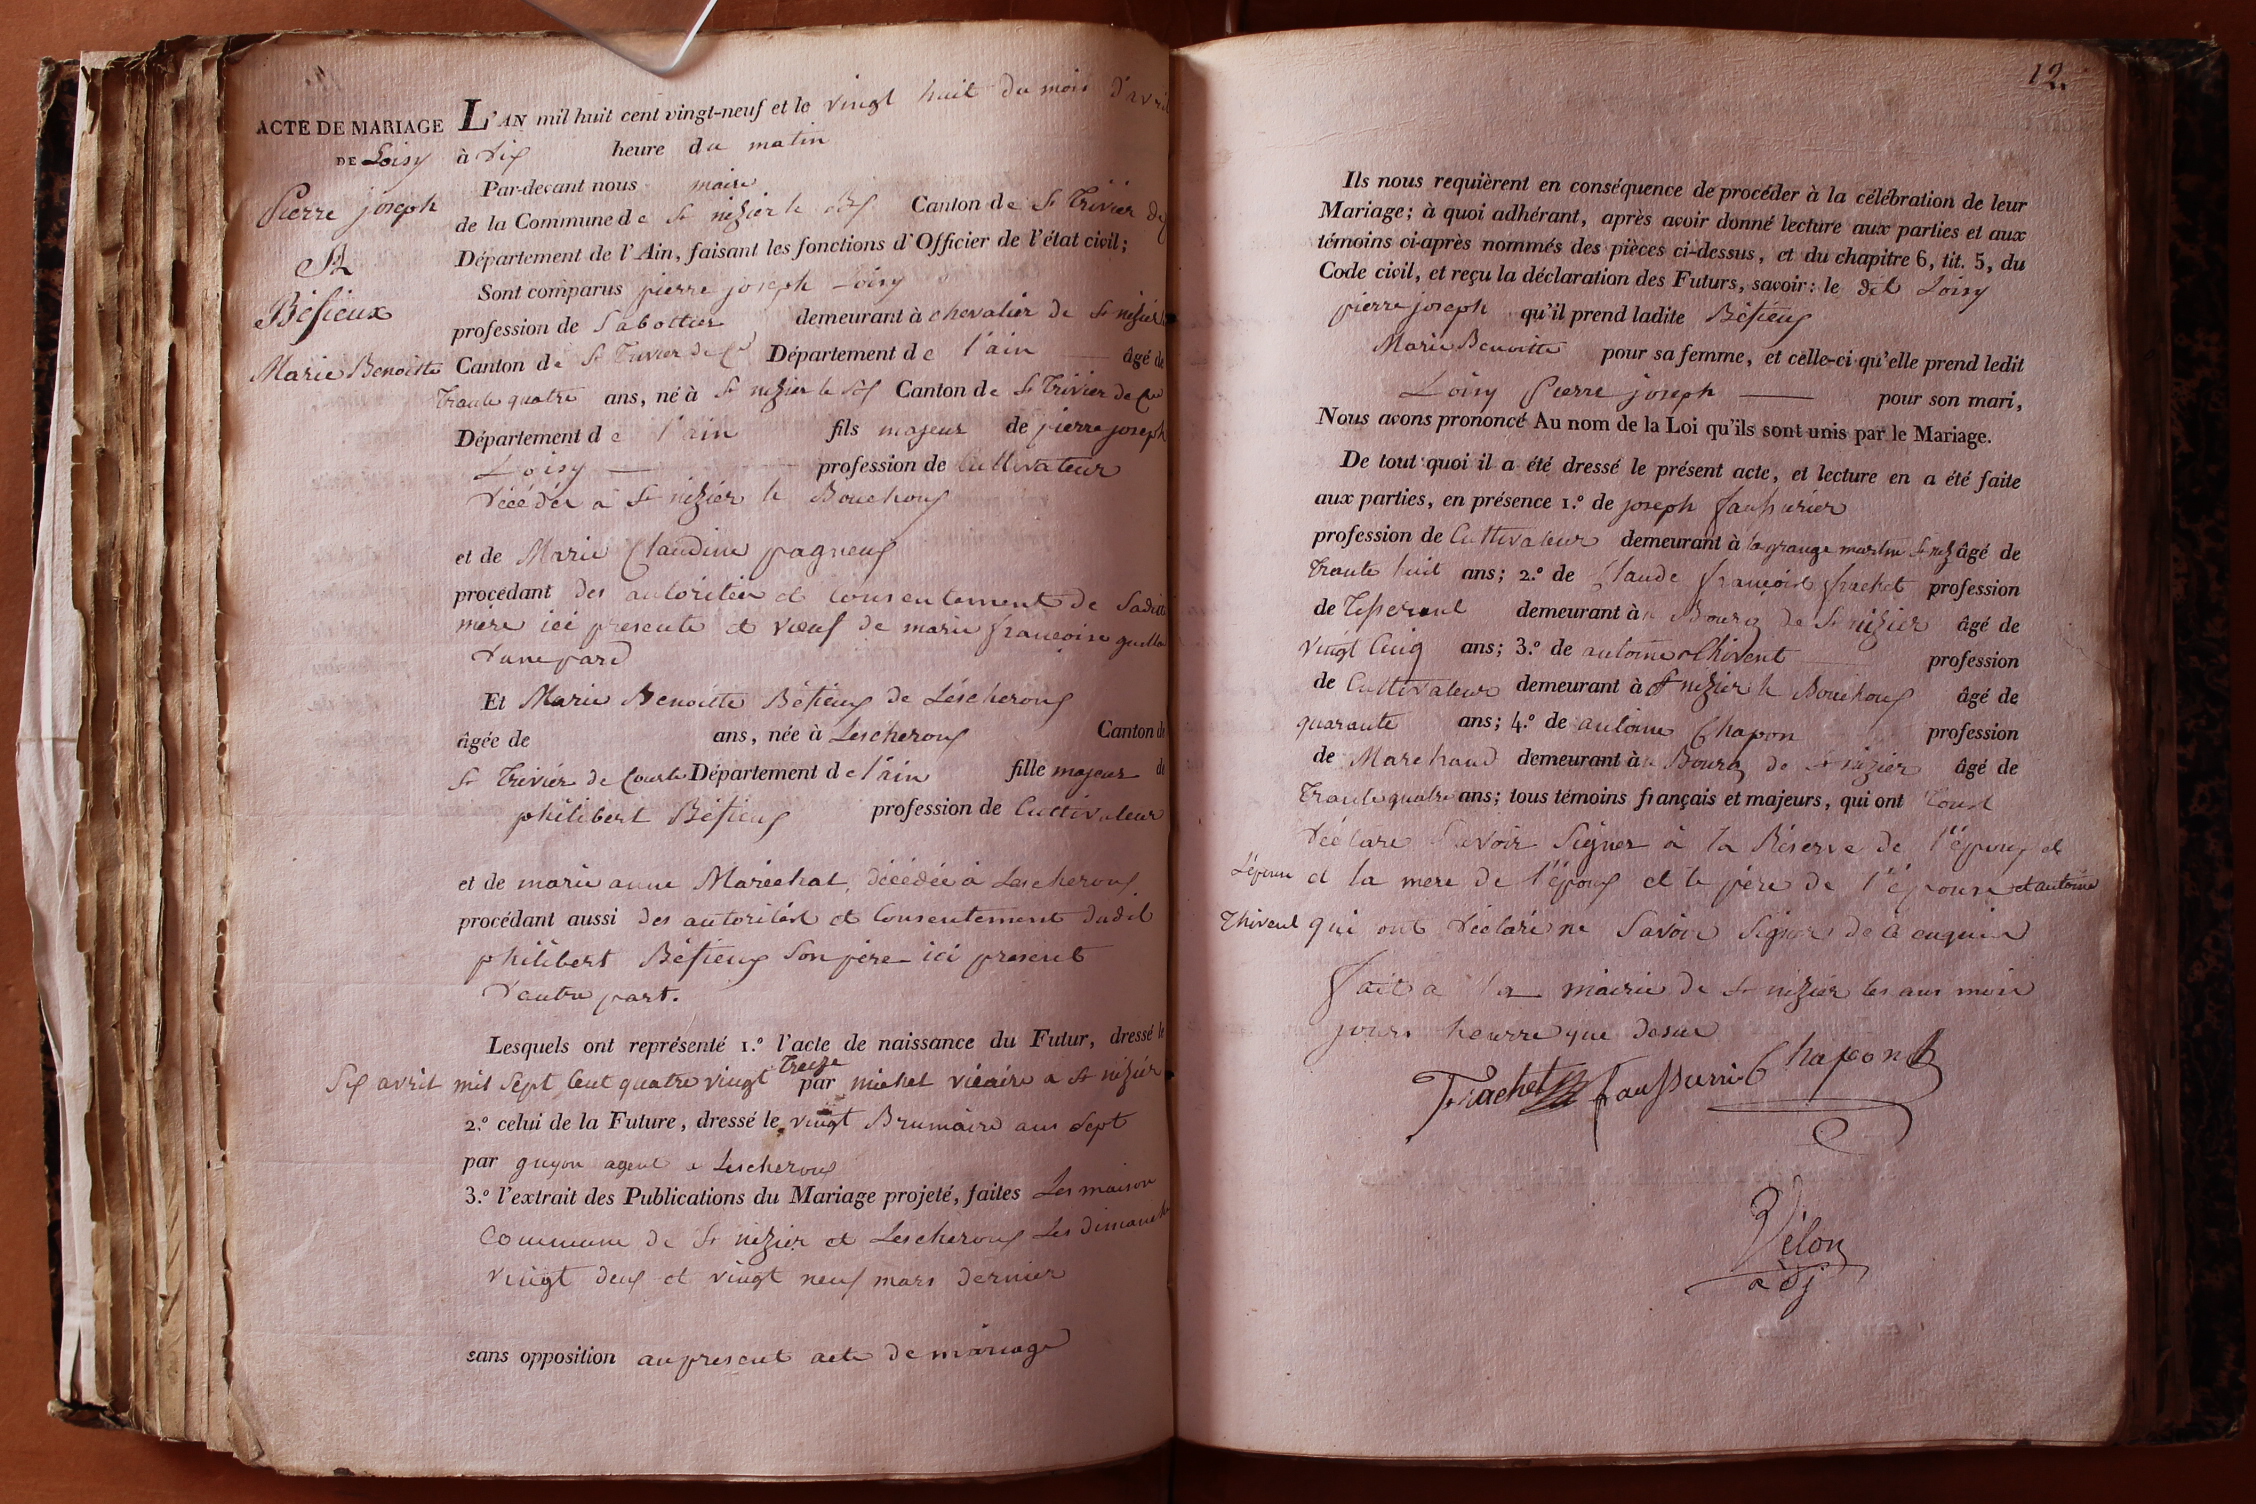 ACTE DE MARIAGE
DE Loisy
Pierre joseph
Et
Bésieux
Marie Benoitte
L'AN mil huit cent vingt-neuf et le vingt huit du mois d'avril
à dix heure du matin
Par-devant nous maire
de la Commune de St nizier le Bx Canton de St Trivier de
Département de l'Ain, faisant les fonctions d'Officier de l'état civil;
Sont comparus pierre joseph Loisy
profession de Sabottier demeurant à chevalier de St nizier
Canton de St Trivier de Ce Département de l'ain âgé de
Trante quatre ans, né à St nizier le Bx Canton de St Trivier de Ce
Département de l'ain fils majeur de pierre joseph
Loisy profession de Cultivateur
décédér à St nizier le Bouchoux
et de Marie Claudine pagneux
procédant des autoritée et consentement de Sadite
mère ici presente et vœuf de marie francoise
d'une pard
Et Marie Benoitte Bésieux de Léscheroux
âgée de ans, née à Lescheroux Canton de
St Trivier de Courte Département de l'ain fille majeur de
philibert Bésieux profession de Cultivateur
et de marie anne Maréchal, décédée à Lescheroux
procédant aussi des autorités et Consentement dudit
philibert Bésieux Son père ici present
d'autre part.
Lesquels ont représenté 1.º l'acte de naissance du Futur, dressé le
Six avril mil Sept Cent quatre vingt Treize par michel vicaire a St nizier
2.º celui de la Future, dressé le vingt Brumaire ans Sept
par guyon agent a Lescheroux
3.º l'extrait des Publications du Mariage projeté, faites Les maison
Commune de St nizier et Lescheroux Les dimanche
vingt deux et vingt neuf mars dernier
sans opposition au present acte de mariage
12.
Ils nous requièrent en conséquence de procéder à la célébration de leur
Mariage; à quoi adhérant, après avoir donné lecture aux parties et aux
témoins ci-après nommés des pièces ci-dessus, et du chapitre 6, tit. 5, du
Code civil, et reçu la déclaration des Futurs, savoir: le dit Loisy
pierre joseph qu'il prend ladite Bésieux
Marie Benoitte pour sa femme, et celle-ci qu'elle prend ledit
Loisy Pierre joseph pour son mari,
Nous avons prononcé Au nom de la Loi qu'ils sont unis par le Mariage.
De tout quoi il a été dressé le présent acte, et lecture en a été faite
aux parties, en présence 1.º de joseph faussurier
profession de Cultivateur demeurant à la grange martin St niz âgé de
Trante huit ans; 2.º de Claude françois frachet profession
de Tisserand demeurant à Bourg de St nizier âgé de
vingt Cinq ans; 3.º de antoine Thivent profession
de Cultivateur demeurant à St nizier le Bouchoux âgé de
quarante ans; 4.º de antoine Chapon profession
de Marchand demeurant à Bourg de St nizier âgé de
Trante quatre ans; tous témoins français et majeurs, qui ont Tous
déclare Savoir Signer à la Réserve de l'époux et
L'épouse et la mere de l'époux et le père de l'épouse et antoine
Thivent qui ont déclaré ne Savoir Signer de ce enquis
fait a la mairie de St nizier les ans mois
jours heurre que desus
Frachet faussurrier Chapon
Vélon
adj